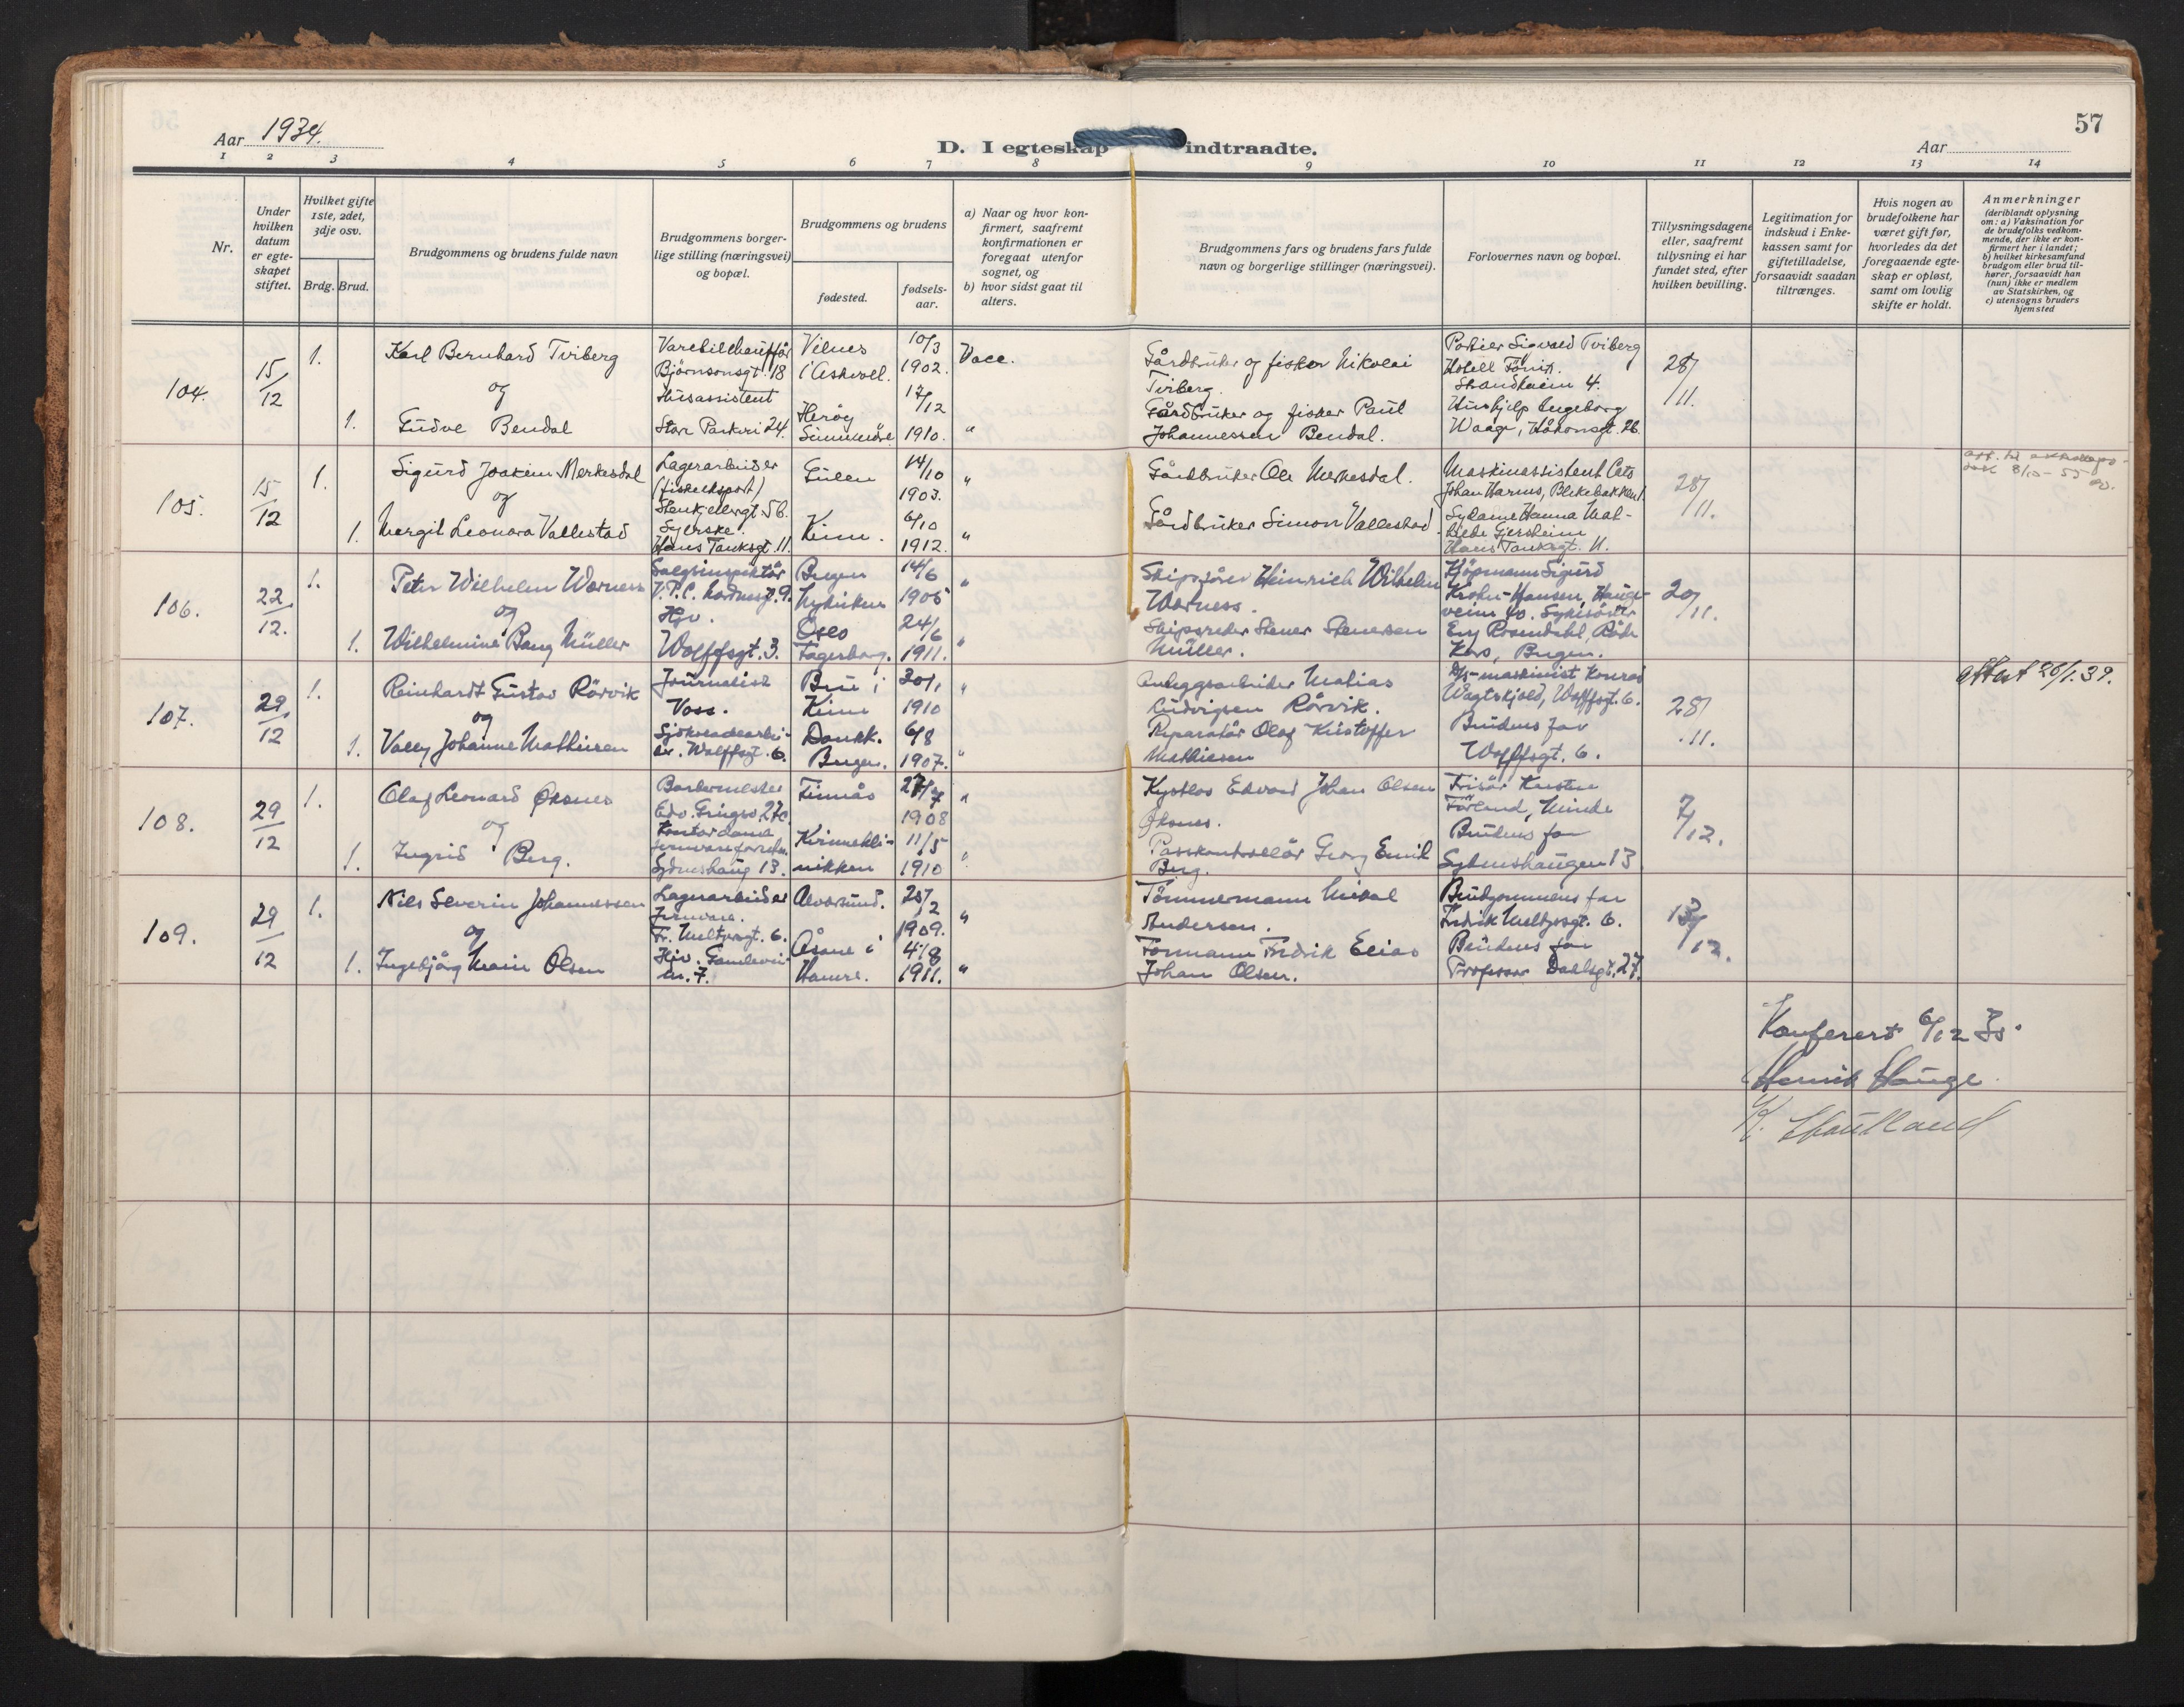 Aar 1934.
D. I egteskap indtraadte.
Aar
57
1 2 3 4 5 6 7 8 9 10 11 12 13 14
Nr.
Under hvilken datum er egteskapet stiftet.
Hvilket gifte 1ste, 2det, 3dje osv.
Brdg. Brud.
Brudgommens og brudens fulde navn
Brudgommens borgerlige stilling (næringsvei) og bopæl.
Brudgommens og brudens
fødested.
fødselsaar.
a) Naar og hvor konfirmert, saafremt konfirmationen er foregaat utenfor sognet, og
b) hvor sidst gaat til alters.
Brudgommens fars og brudens fars fulde navn og borgerlige stillinger (næringsvei).
Forlovernes navn og bopæl.
Tillysningsdagene eller, saafremt tillysning ei har fundet sted, efter hvilken bevilling.
Legitimation for indskud i Enkekassen samt for giftetilladelse, forsaavidt saadan tiltrænges.
Hvis nogen av brudefolkene har været gift før, hvorledes da det foregaaende egteskap er opløst, samt om lovlig skifte er holdt.
Anmerkninger
(deriblandt oplysning om: a) Vaksination for de brudefolks vedkommende, der ikke er konfirmert her i landet;
b) hvilket kirkesamfund brudgom eller brud tilhører, forsaavidt han (hun) ikke er medlem av Statskirken, og
c) utensogns bruders hjemsted
104. 15/12 1. Karl Bernhard Tviberg
og
1. Gudve Bendal
Varebilchauffør
Bjørnsonsgt. 18
Husassistent
Store Parkvei 24.
Vilnes
i Askvoll.
Herøy
Sunnmøre
10/3
1902.
17/12
1910.
Vacc.
"
Gårdbruker og fisker Nikolai
Tviberg.
Gårdbruker og fisker Paul
Johannessen Bendal.
Portier Sigvald Tviberg
Hotell Fönix.
Strandkaien 4.
Hushjelp Ingeborg
Waage, Håkonsgt. 26.
28/11.
105. 15/12 1. Sigurd Joakim Merkesdal
og
1. Margit Leonora Vallestad
Lagerarbeider
(fiskeeksport)
Stenkjellergt. 5b.
Syerske.
Hans Tanksgt. 11.
Gulen
Kinn.
14/10
1903.
6/10
1912.
"
"
Gårdbruker Ole Merkesdal.
Gårdbruker Simon Vallestad
Maskinassistent Cato
Johan Harms, Blekebakken 1.
Sydame Hanna Mathilde Gjersheim
Hans Tanksgt. 11.
28/11.
106. 22/12. 1. Peter Wilhelm Warness
og
1. Wilhelmine Bang Müller
Salgsinspektør
V.P.C. Nordnesg. 9.
Hjv.
Wolffsgt. 3.
Bergen
Nykirken
Oslo
Fagerborg.
14/6
1905
24/6
1911.
"
"
Skipsfører Heinrich Wilhelm
Warness.
Skipsreder Stener Stenersen
Müller.
Kjøpmann Sigurd
Krohn-Hansen, Haugeveien 40. Sykesöster
Eny Rosendahl, Röde
Kors, Bergen.
20/11.
107. 29/12 1. Reinhardt Gustav Rørvik
og
1. Vally Johanne Mathiesen
Journalist
Voss.
Wolffsgt. 6.
Bru i
Kinn
Domk.
Bergen.
20/1
1910
6/8
1907.
"
"
Anleggsarbeider Matias
Ludvigsen Rørvik.
Reparatør Olaf Kristoffer
Mathiesen
D/s-maskinist Konrad
Wagtskjold, Wolffsgt. 6.
Brudens far
Wolffsgt. 6.
28/11.
attest 26/1.39.
108. 29/12 1. Olaf Leonard Øksnes
og
1. Ingrid Berg.
Barbermester
Edv. Griegsv. 27c.
Kontordame
jernvareforretn.
Sydneshaug 13.
Finnås
Kvinneklinikken
27/7
1908
11/5
1910
"
"
Kystlos Edvard Johan Olsen
Øksnes.
Passkontrollør Georg Emil
Berg.
Frisör Karsten
Förland, Minde
Brudens far
Sydneshaugen 13
7/12.
109. 29/12 1. Nils Severin Johannessen
og
1. Ingebjörg Marie Olsen
Lagerarbeider
Jernvare.
Fr. Meltzersgt. 6.
Hjv. Gamleveien. 7.
Alversund.
Åsane i
Hamre.
25/2
1909.
4/8
1911.
"
"
Tömmermann Mikal
Andersen.
Formann Fredrik Elias
Johan Olsen.
Brudgommens far
Fredrik Meltzersgt. 6.
Brudens far
Professor Dahlsgt. 27.
13/12.
Konferert 6/12 35.
Henrik Hauge.